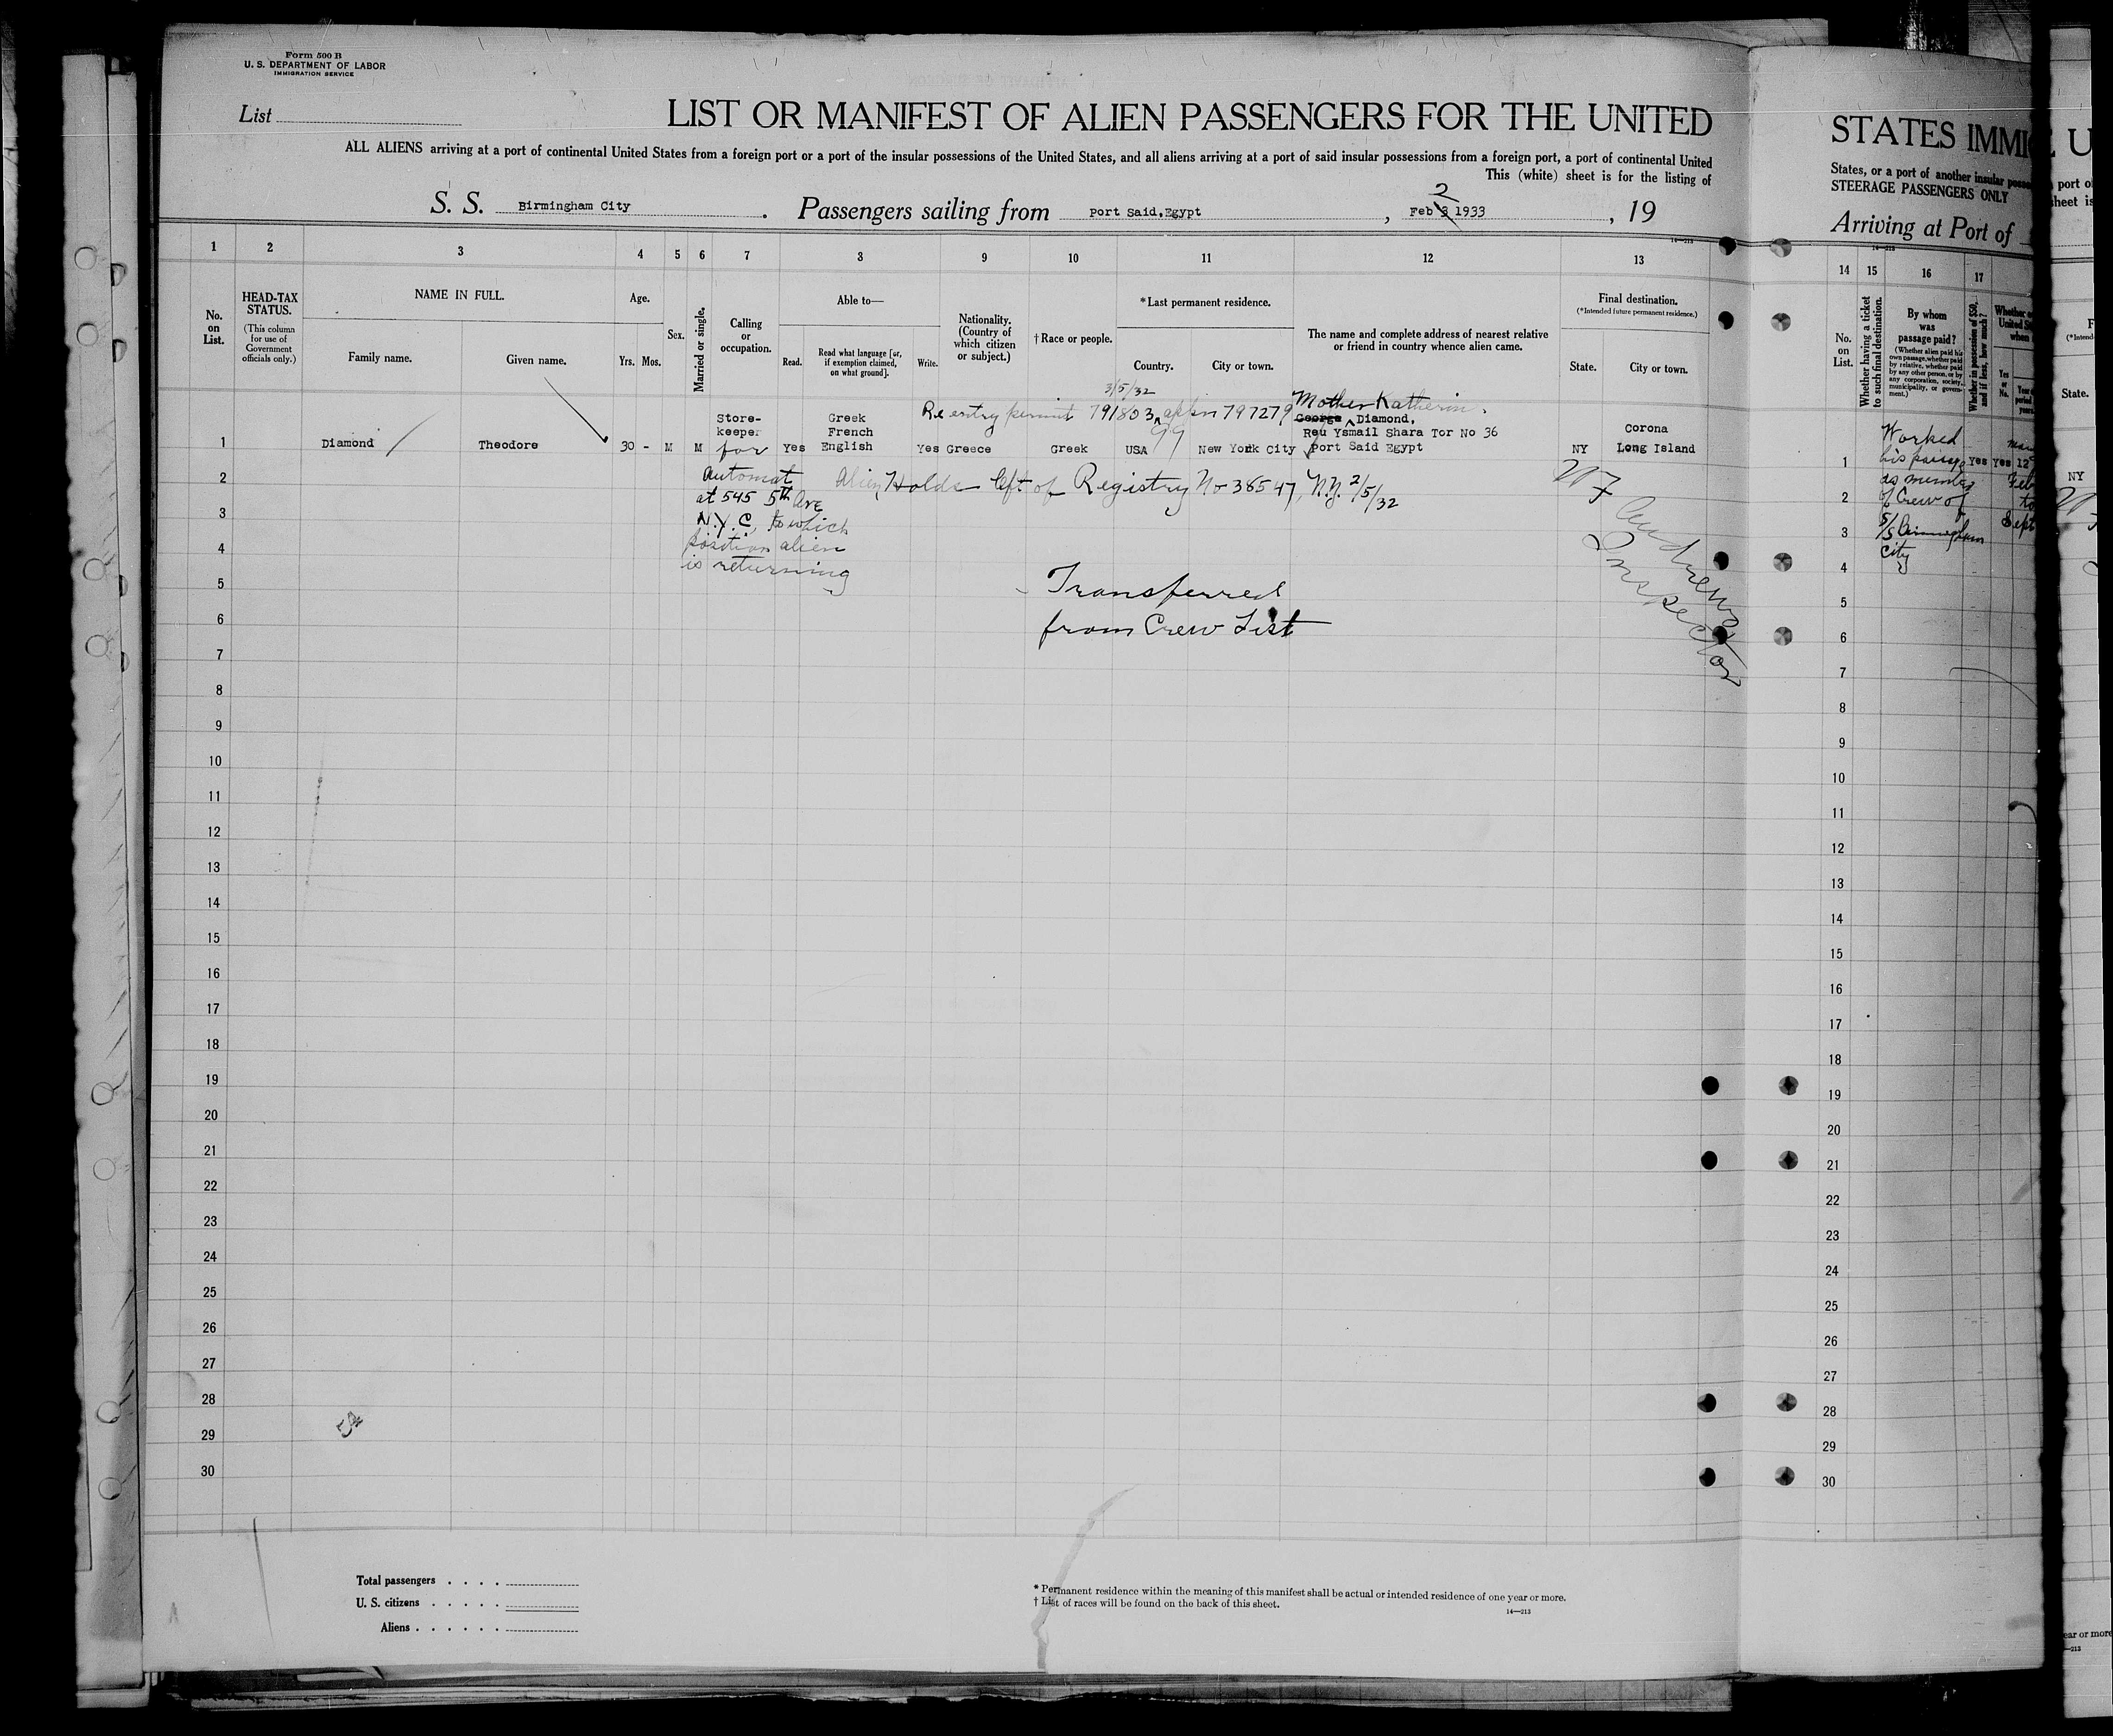 Form 500 B
U. S. DEPARTMENT OF LABOR
IMMIGRATION SERVICE
List
LIST OR MANIFEST OF ALIEN PASSENGERS FOR THE UNITED
ALL ALIENS arriving at a port of continental United States from a foreign port or a port of the insular possessions of the United States, and all aliens arriving at a port of said insular possessions from a foreign port, a port of continental United
This (white) sheet is for the listing of
S. S. Birmingham City. Passengers sailing from Port Said,Egypt, Feb 3 1933, 19
2
14—213
1 2 3 4 5 6 7 8 9 10 11 12 13
No. on List.
HEAD-TAX STATUS.
(This column for use of Government officials only.)
NAME IN FULL.
Family name.
Given name.
Age.
Yrs. Mos.
Sex.
Married or single.
Calling or occupation.
Able to—
Read.
Read what language [or, if exemption claimed, on what ground].
Write.
Nationality. (Country of which citizen or subject.)
† Race or people.
*Last permanent residence.
Country.
City or town.
The name and complete address of nearest relative or friend in country whence alien came.
Final destination.
(*Intended future permanent residence.)
State.
City or town.
3/5/32
Re entry permit 791803, appln 797279
99
Mother Katherin
1 Diamond Theodore 30 - M M Store-keeper Yes Greek French English Yes Greece Greek USA New York City George Diamond, Reu Ysmail Shara Tor No 36 Port Said Egypt NY Corona Long Island
for
Automat
at 545 5th Ave
N.Y.C, to which
position alien
is returning
Alien Holds Cft of Registry No 38547, N.Y. 2/5/32
Transferred
from Crew List
Andrews
Inspector
2
3
4
5
6
7
8
9
10
11
12
13
14
15
16
17
18
19
20
21
22
23
24
25
26
27
28
29
30
54
Total passengers . . . .
U. S. citizens . . . . .
Aliens . . . . . .
* Permanent residence within the meaning of this manifest shall be actual or intended residence of one year or more.
† List of races will be found on the back of this sheet.
14—213
STATES IMMI
States, or a port of another insular
STEERAGE PASSENGERS ONLY
Arriving at Port of
14—213
14 15 16 17
No. on List.
Whether having a ticket to such final destination.
By whom was passage paid?
(Whether alien paid his own passage, whether paid by relative, whether paid by any other person, or by any corporation, society, municipality, or government.)
Whether in possession of $50, and if less, how much?
Yes or No.
1 Worked
his passage Yes Yes 12
as member
of Crew of
S/S Birmingham
City
Sept
2
3
4
5
6
7
8
9
10
11
12
13
14
15
16
17
18
19
20
21
22
23
24
25
26
27
28
29
30
State.
NY
ear or more